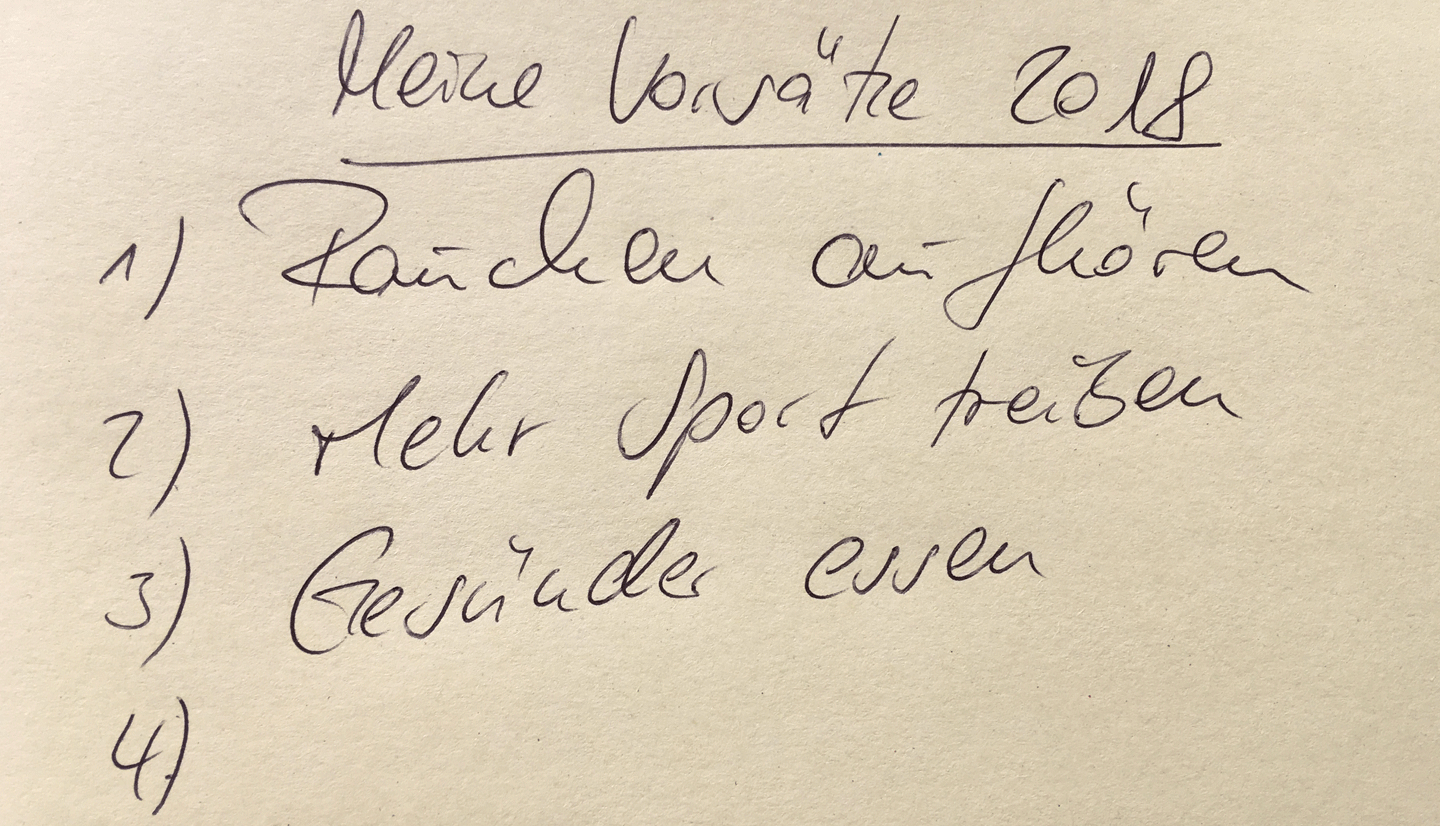 Meine Vorsätze 2018
1) Rauchen aufhören
2) Mehr Sport treiben
3) Gesünder essen
4)